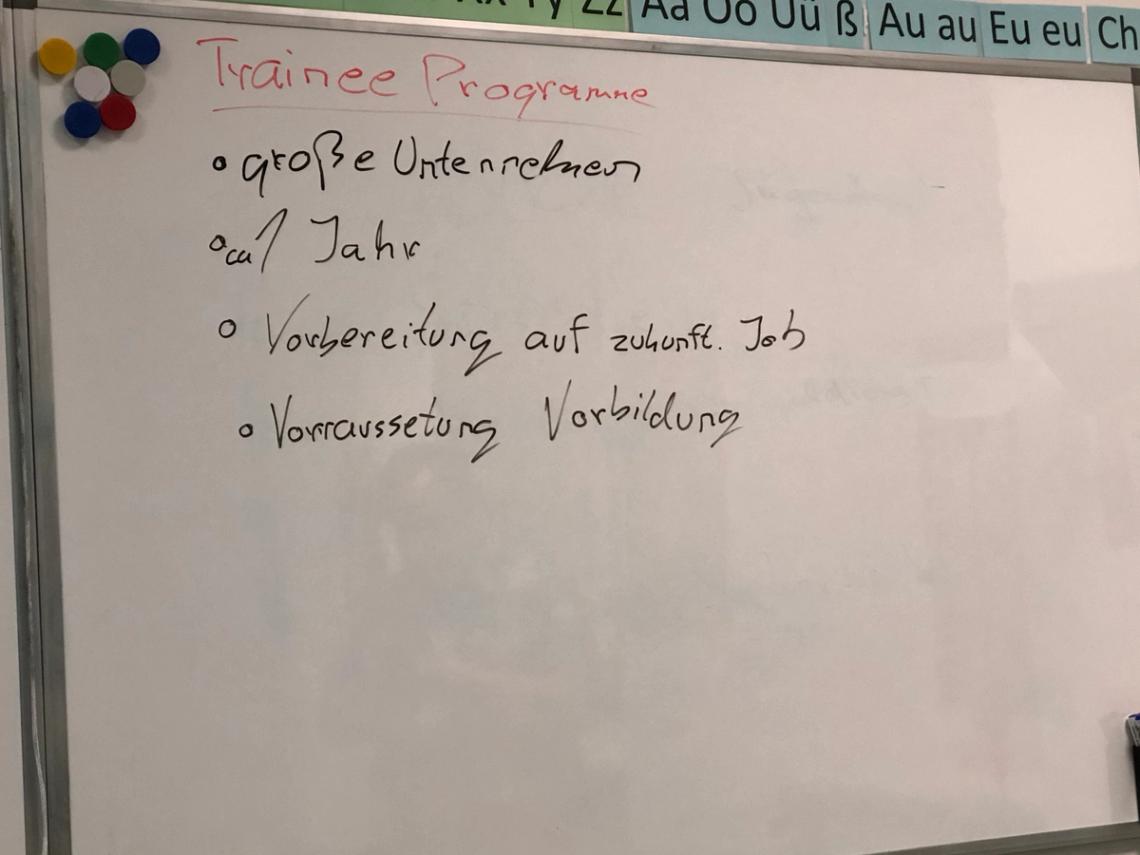 Xx Yy Zz Ää Öö Üü ß Au au Eu eu Ch
Trainee Programme
• große Unternrehmen
• ca 1 Jahr
• Vorbereitung auf zukunft. Job
• Vorraussetung Vorbildung